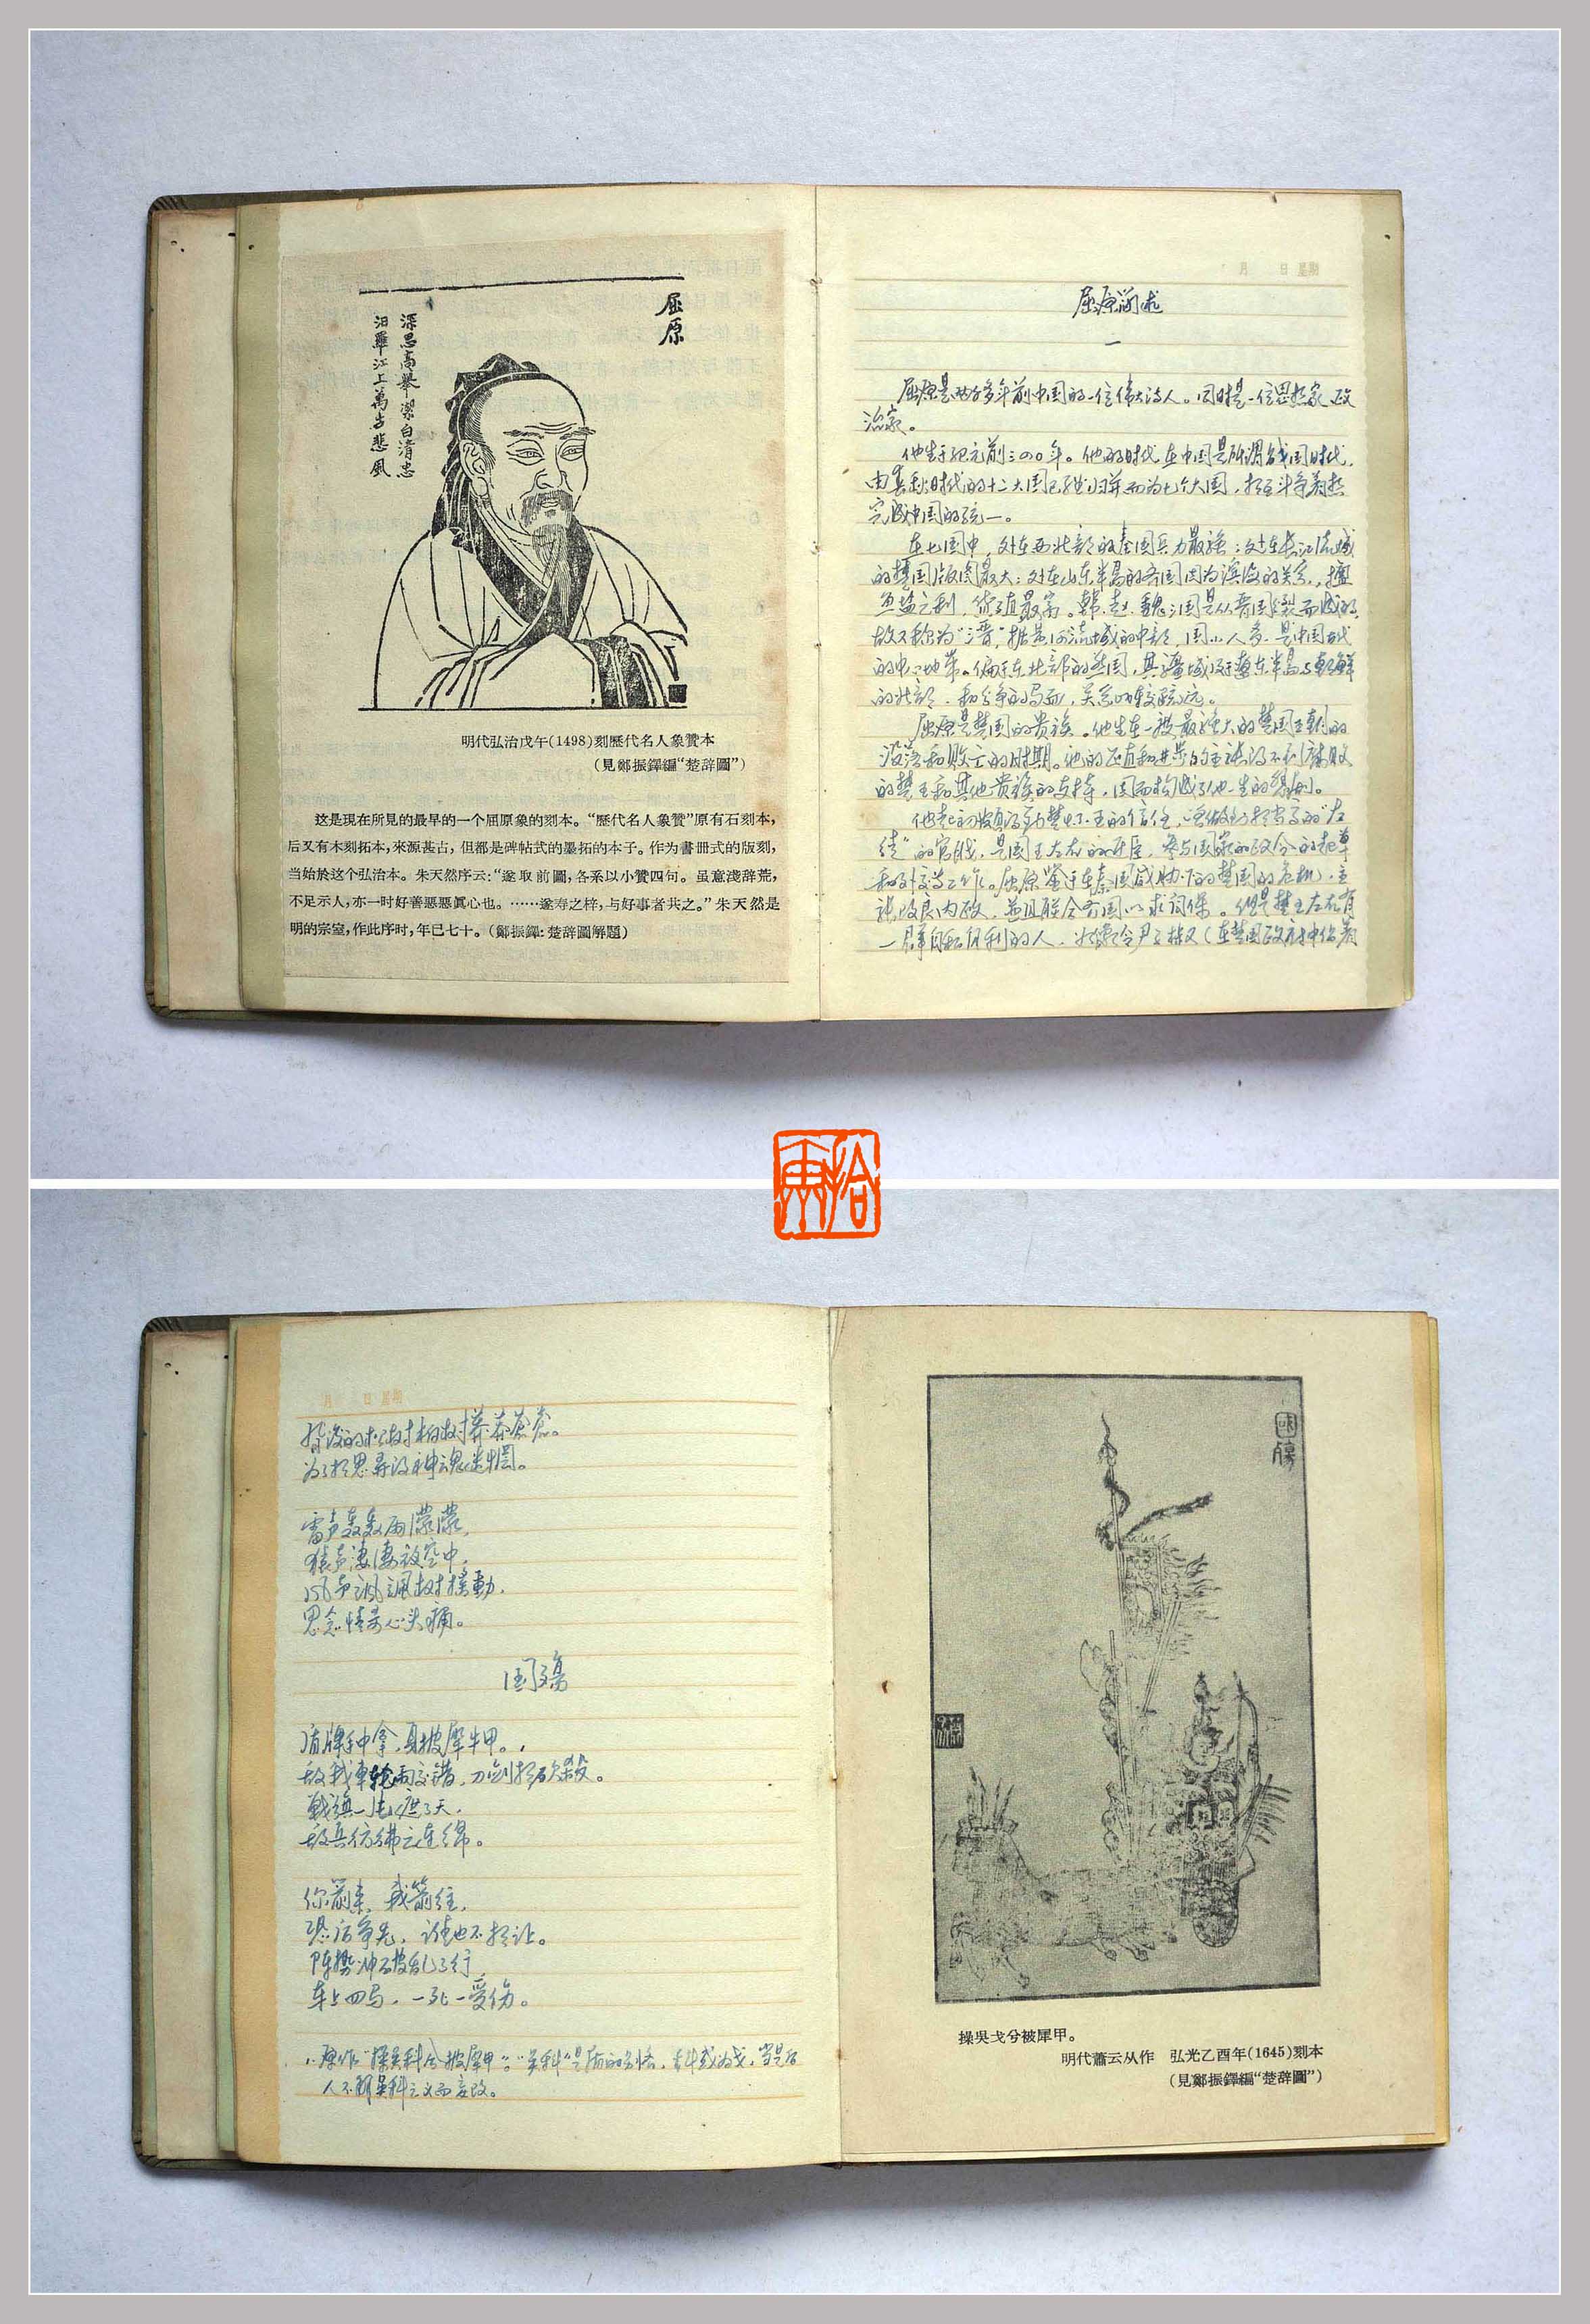 屈原
深思高舉潔白清忠
汨羅江上萬古悲風
明代弘治戊午(1498)刻歷代名人象贊本
(見鄭振鐸編“楚辞圖”)
这是現在所見的最早的一个屈原象的刻本。“歷代名人象贊”原有石刻本，
后又有木刻拓本，來源甚古，但都是碑帖式的墨拓的本子。作为書冊式的版刻，
当始於这个弘治本。朱天然序云:“遂取前圖，各系以小贊四句。虽意淺辞荒，
不足示人，亦一时好善惡惡眞心也。……遂寿之梓，与好事者共之。”朱天然是
明的宗室，作此序时，年已七十。(鄭振鐸:楚辞圖解題)
月 日 星期
屈原简述
一
屈原是两千多年前中国的一位伟大诗人。同时是一位思想家、政
治家。
他生于纪元前三四〇年。他的时代在中国是所谓战国时代，
由春秋时代的十二大国已经归并而为七个大国，相互斗争着想
完成中国的统一。
在七国中，处在西北部的秦国兵力最强；处在长江流域
的楚国版图最大；处在山东半岛的齐国因为滨海的关系，擅
鱼盐之利，货殖最富。韩、赵、魏三国是从晋国分裂而成的，
故又称为“三晋”，据黄河流域的中部，国小人多，是中国古代
的中心地带。偏于东北部的燕国，其疆域及于辽东半岛与朝鲜
的北部，和纷争的局面，关系比较疏远。
屈原是楚国的贵族。他生在一度最强大的楚国王朝的
没落和败亡的时期。他的正直和进步的主张得不到腐败
的楚王和其他贵族的支持，因而构成了他一生的悲剧。
他起初颇得到楚怀王的信任，曾做到相当高的“左
徒”的官职，是国王左右的近臣，参与国家的政令的起草
和外交等工作。屈原鉴于在秦国威胁下的楚国的危机，主
张改良内政，并且联合齐国以求同保。但是楚王左右有
一群自私自利的人，如像令尹子椒（在楚国政府中位为
拾
月 日 星期
为了相思寻汝神魂迷惘。
雷声轰轰雨濛濛，
猿声凄凄夜空中，
风声飒飒树摇動，
思念情景心头痛。
国殇
盾牌手中拿，身披犀牛甲。
敌我車轮两交错，刀劍相砍殺。
戰旗一片遮了天，
敌兵仿彿云连绵。
你箭来，我箭往，
恐后争先，谁也不相让。
阵势冲破乱了行，
车上四马，一死一受伤。
1. 原作“操吴科兮披犀甲”。“吴科”是盾的别名，吴科或为戈，当是后
人不明吴科之义而妄改。
國殤
操吳戈兮被犀甲。
明代蕭云从作 弘光乙酉年(1645)刻本
(見鄭振鐸編“楚辞圖”)